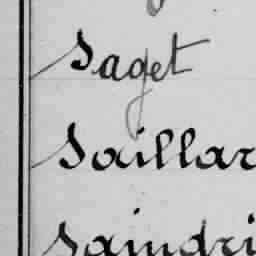 Saget
Saillar
Saindri